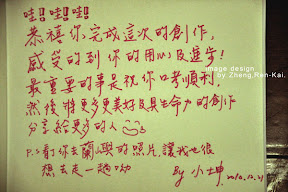 哇!哇!哇!
恭禧你,完成這次的創作,
感受的到你的用心及進步!
最重要的事是祝你口考順利,
然後將更多更美好及具生命力的創作
分享給更多的人
P.S 看了你去蘭嶼的照片,讓我也很
想去走一趟呦
By 小坤
2010.12.21
image design
by Zheng,Ren-Kai.